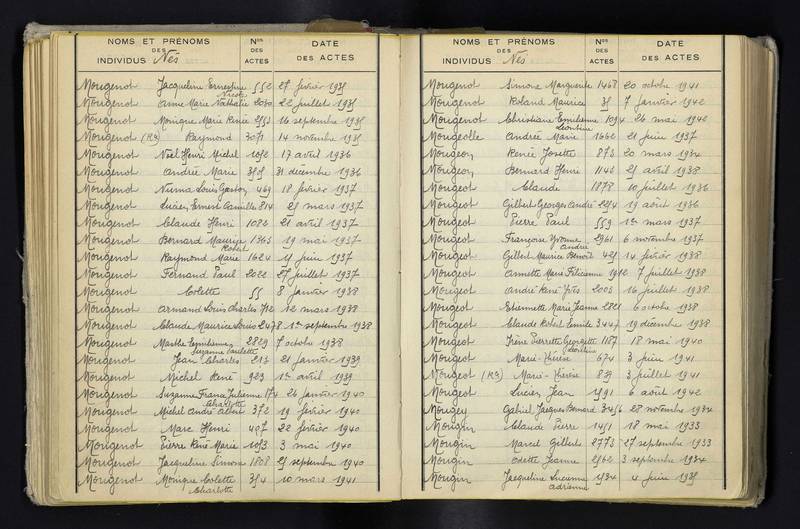 NOMS ET PRÉNOMS
DES
INDIVIDUS Nés
Nos
DES
ACTES
DATE
DES ACTES
Mougenot Jacqueline Ernestine 552 27 février 1935
Nicole
Mougenot Anne Marie Nathalie 2030 22 juillet 1935
Mougenot Monique Marie Renée 2553 16 septembre 1935
Mougenot (Ra) Raymond 3071 14 novembre 1935
Mougenot Noël Henri Michel 1052 17 avril 1936
Mougenot André Marie 3585 31 décembre 1936
Mougenot Numa Louis Gaston 469 18 février 1937
Mougenot Lucien Ernest Camille 814 25 mars 1937
Mougenot Claude Henri 1082 21 avril 1937
Mougenot Bernard Maurice 1363 19 mai 1937
Robert
Mougenot Raymond Marie 1624 15 juin 1937
Mougenot Fernand Paul 2022 27 juillet 1937
Mougenot Colette 55 8 janvier 1938
Mougenot Armand Louis Charles 712 12 mars 1938
Mougenot Claude Maurice Louis 2478 1er septembre 1938
Mougenot Marthe 2829 7 octobre 1938
Suzanne Paulette
Mougenot Jean Charles 213 21 janvier 1939
Mougenot Michel René 929 1er avril 1939
Mougenot Suzanne France Julienne 274 26 janvier 1940
Charlotte
Mougenot Michel André Albert 372 19 février 1940
Mougenot Marc Henri 457 22 février 1940
Mougenot Pierre René Marie 1053 3 mai 1940
Mougenot Jacqueline Simone 1808 25 septembre 1940
Mougenot Monique Colette 354 10 mars 1941
Charlotte
NOMS ET PRÉNOMS
DES
INDIVIDUS Nés
Nos
DES
ACTES
DATE
DES ACTES
Mougenot Simone Marguerite 1468 20 octobre 1941
Mougenot Roland Maurice 35 7 janvier 1942
Mougenot Christiane Emilienne 1094 26 mai 1942
Léontine
Mougeolle Andrée Marie 1662 21 juin 1937
Mougeon Renée Josette 873 20 mars 1934
Mougeon Bernard Henri 1146 25 avril 1938
Mougeot Claude 1878 10 juillet 1936
Mougeot Gilbert Georges André 2254 19 août 1936
Mougeot Pierre Paul 559 1er mars 1937
Mougeot Françoise Yvonne 2961 6 novembre 1937
Andrée
Mougeot Gilbert Maurice Benoit 425 14 février 1938
Mougeot Annette Marie Félicienne 1912 7 juillet 1938
Mougeot André René Yves 2003 16 juillet 1938
Mougeot Etiennette Marie Jeanne 2821 6 octobre 1938
Mougeot Claude Robert Emile 3447 19 décembre 1938
Mougeot Irène Pierrette Georgette 1187 18 mai 1940
Mougeot Marie-Thérèse 674 3 juin 1941
Mougeot (Ra) Marie-Thérèse 839 3 juillet 1941
Mougeot Lucien Jean 1591 6 août 1942
Mougey Gabriel Jacques Bernard 3456 28 novembre 1932
Mougin Claude Pierre 1451 18 mai 1933
Mougin Marcel Gilbert 2773 27 septembre 1933
Mougin Odette Jeanne 2562 3 septembre 1934
Mougin Jacqueline Lucienne 1534 4 juin 1935
Adrienne